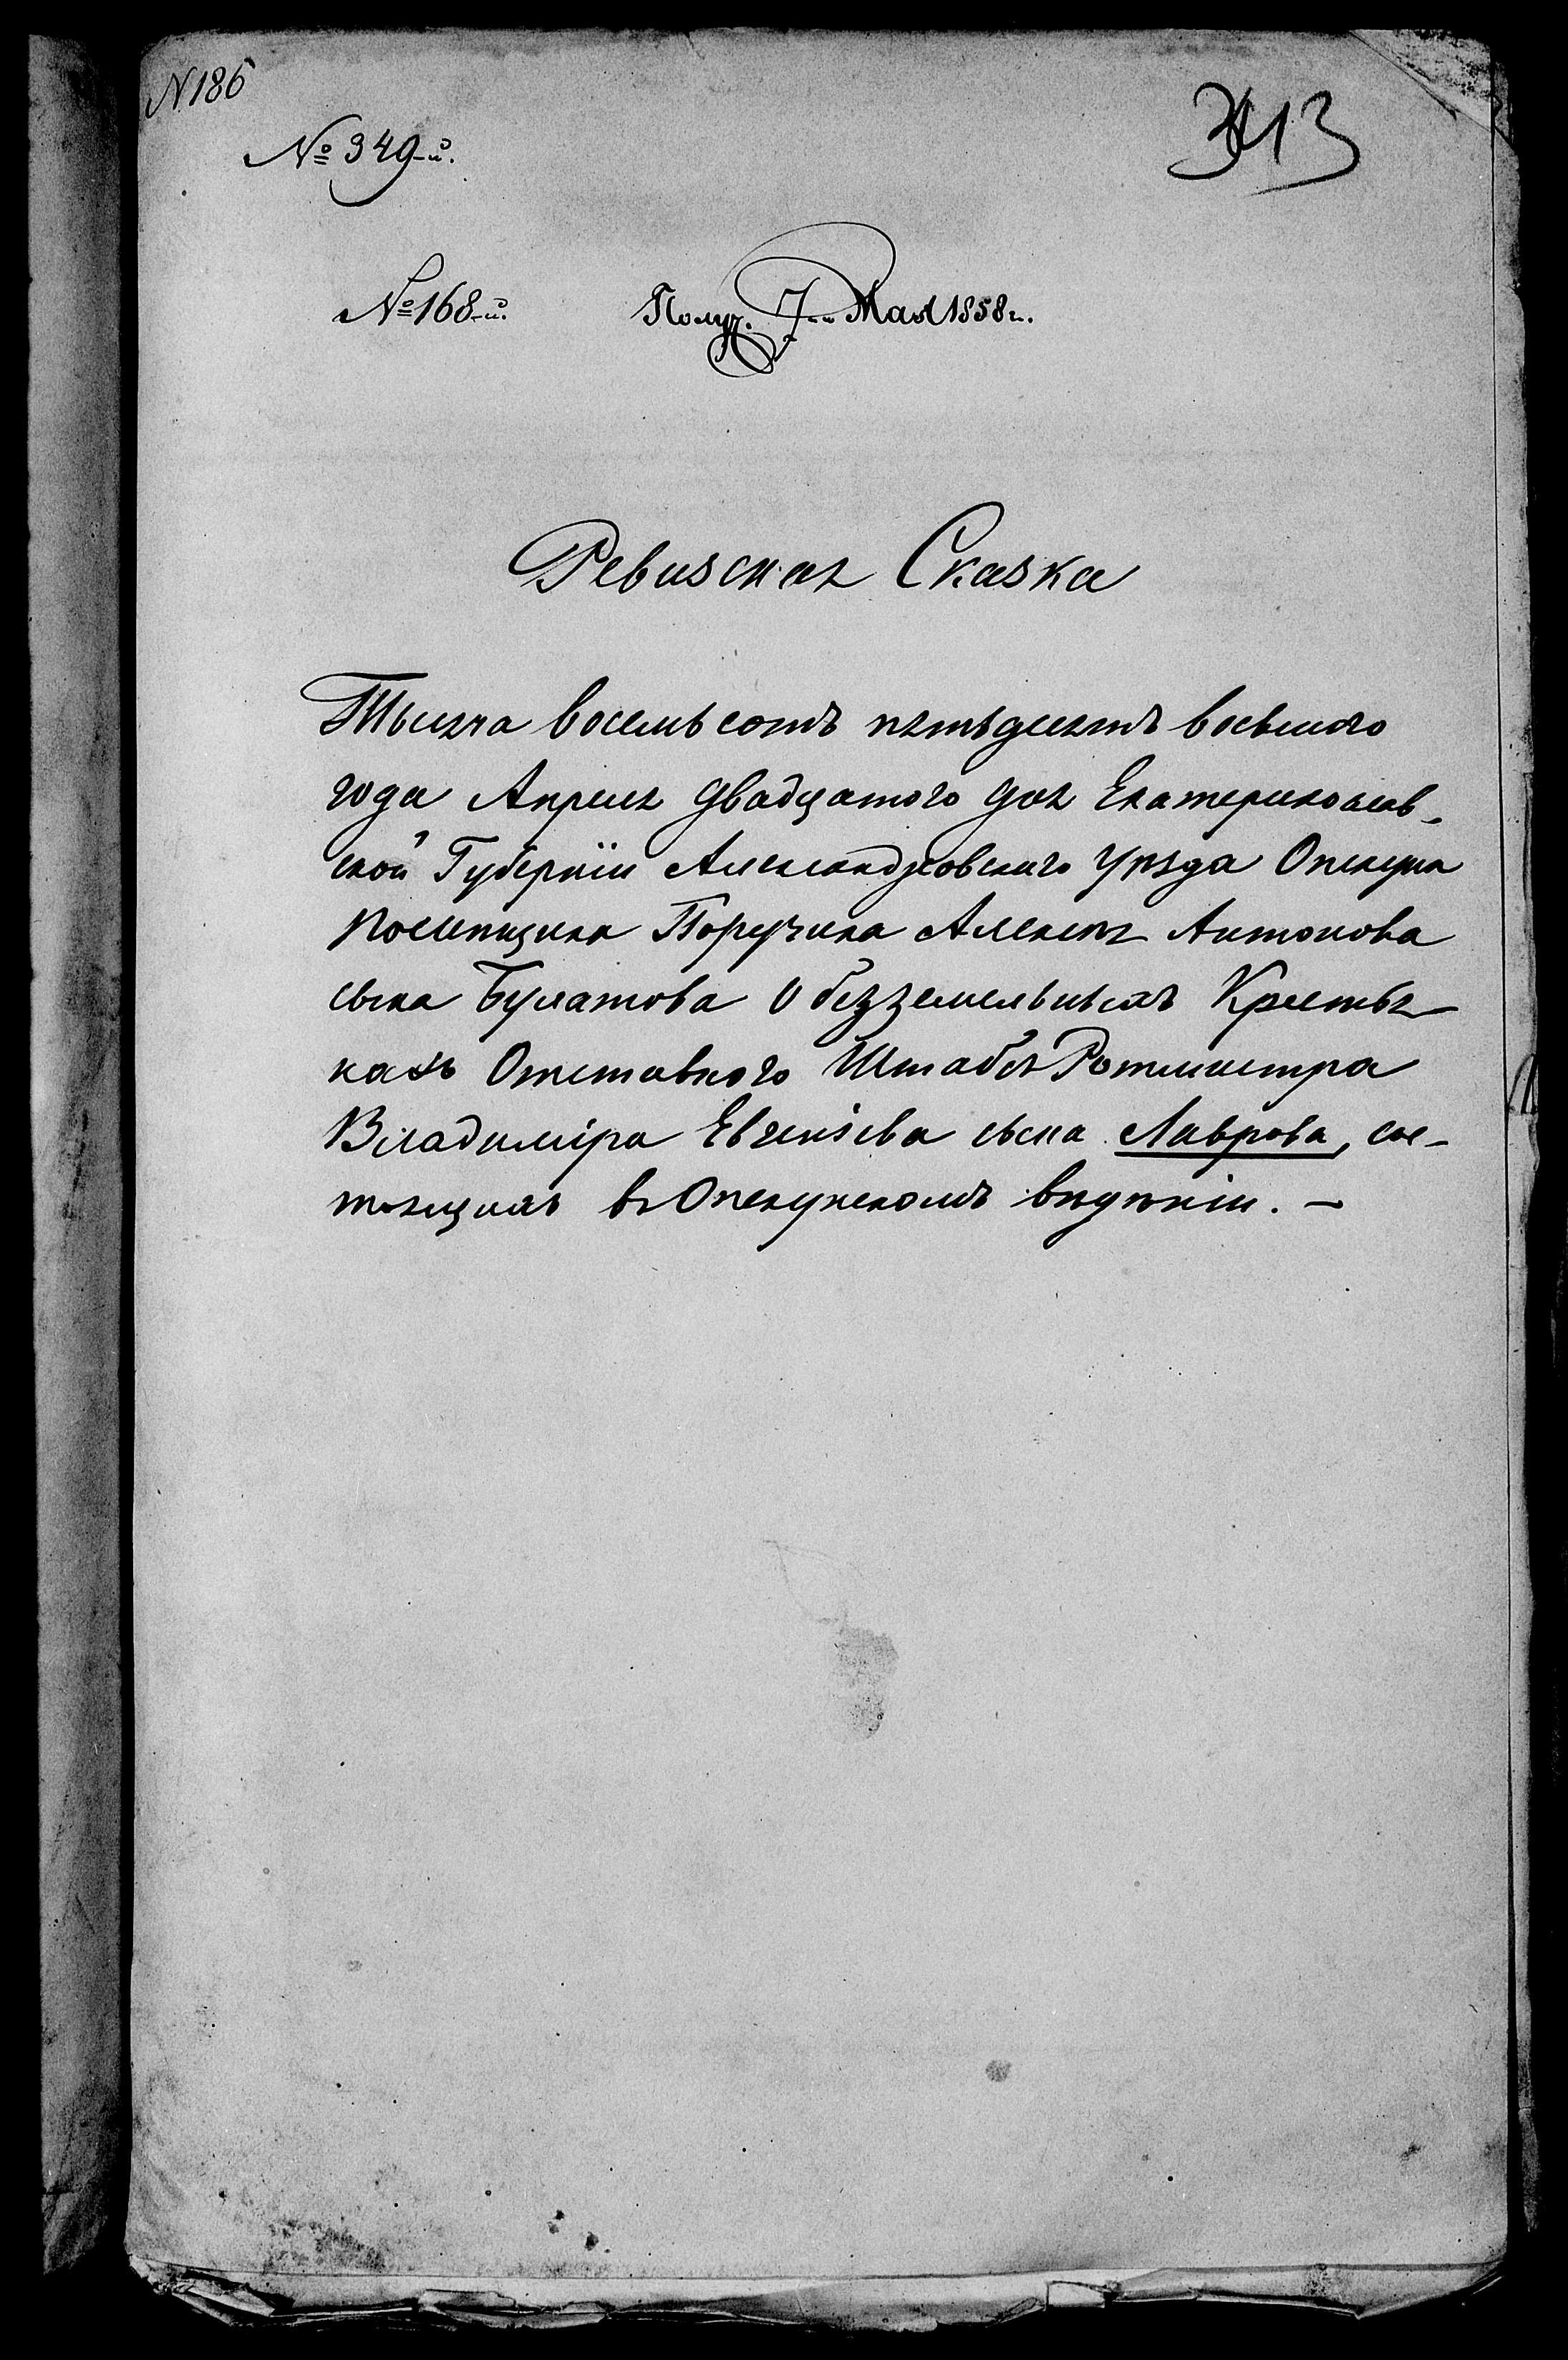 N 186
№ 349-й.
313
№ 168-й. Получ. 7-го Мая 1858 г.
Ревизская Сказка
Тысяча восемь сотъ пятьдесятъ восьмого
года Апреля двадцатого дня Екатеринослав-
ской Губерніи Александровскаго Уѣзда Опекуна
Помѣщика Поручика Алексѣя Антонова
сына Булатова О безземельныхъ Крестья-
нахъ Отставного Штабсъ Ротмистра
Владиміра Евгеніева сына Лаврова, сос-
тоящихъ въ Опекунскомъ вѣдѣніи. —